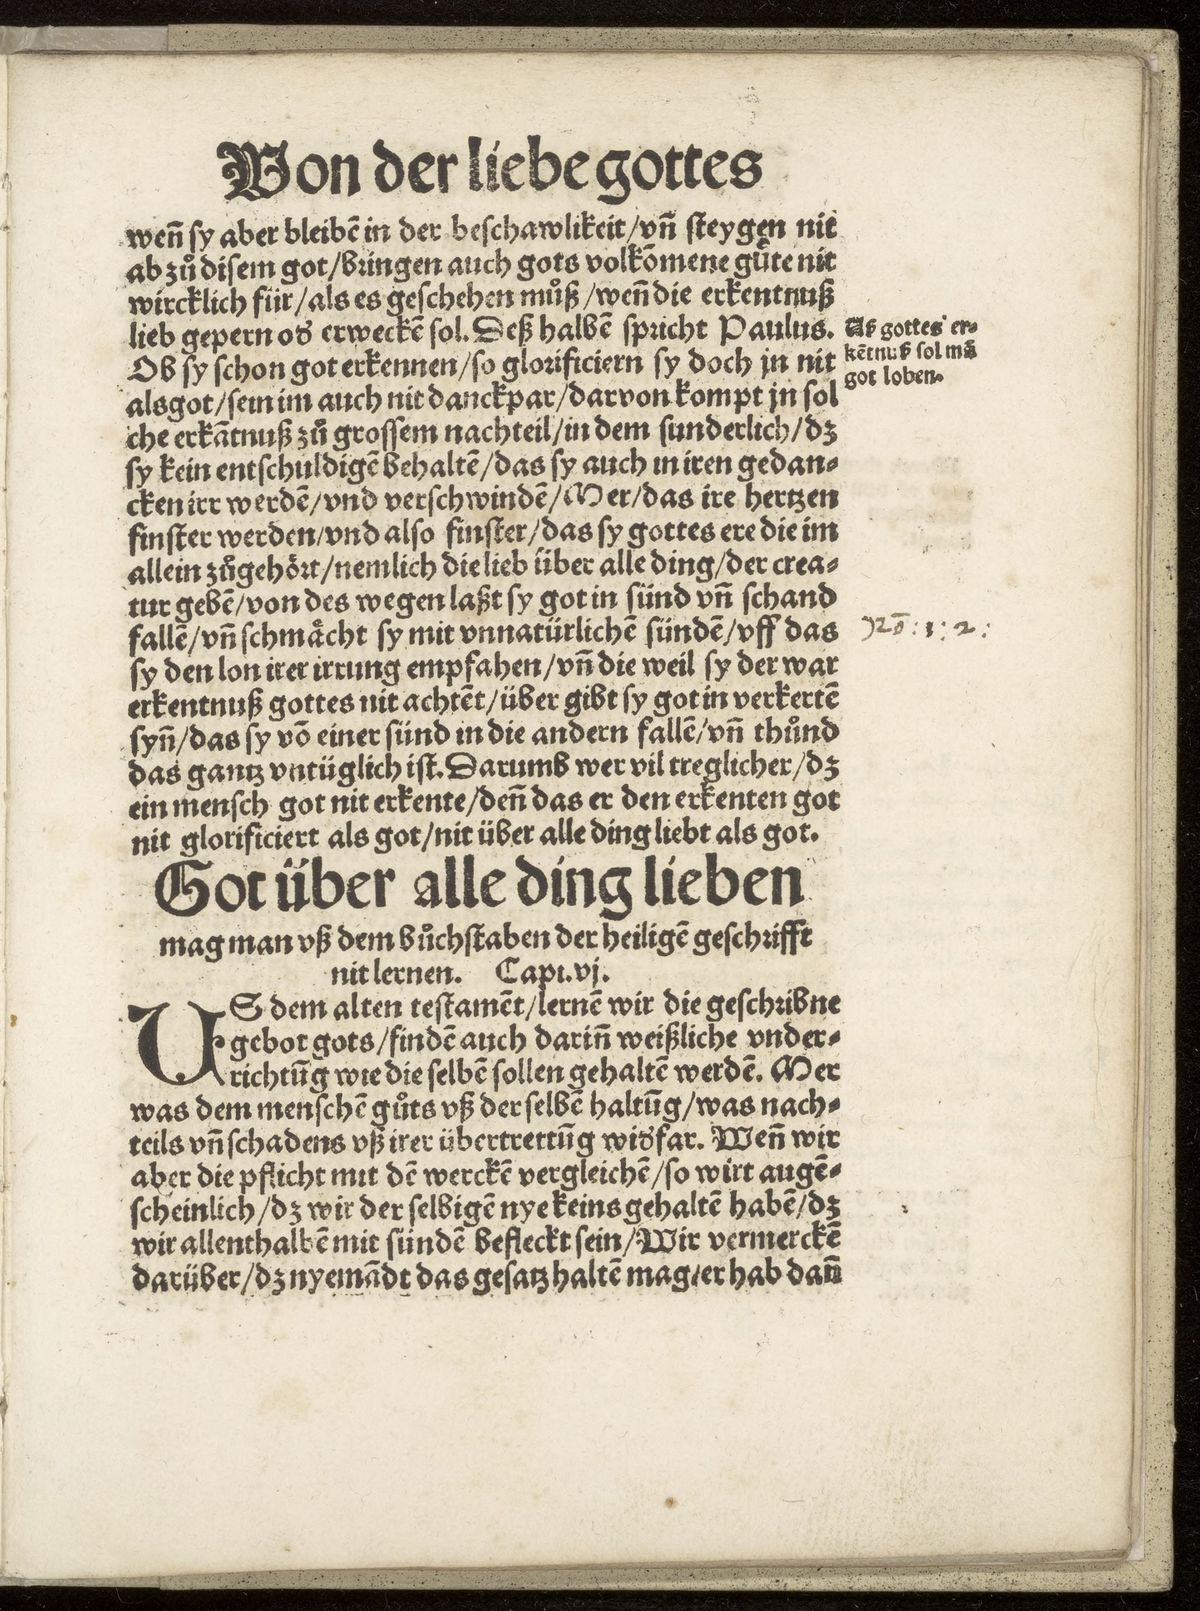 Von der liebe gottes
weñ sy aber bleibē in der beschawlikeit/vñ steygen nit
ab zů disem got/bringen auch gots volkōmene gůte nit
wircklich für/als es geschehen můß/weñ die erkentnuß
lieb gepern oď erweckē sol. Deß halbē spricht Paulus.
Ob sy schon got erkennen/so glorificiern sy doch jn nit
als got/sein im auch nit danckpar/dar von kompt jn sol
che erkātnuß zů grossem nachteil/in dem sunderlich/dz
sy kein entschuldigē behaltē/das sy auch in iren gedan-
cken irr werdē/vnd verschwindē/Mer/das ire hertzen
finster werden/vnd also finster/das sy gottes ere die im
allein zůgehört/nemlich die lieb über alle ding/der crea-
tur gebē/von des wegen laßt sy got in sünd vñ schand
fallē/vñ schmächt sy mit vnnatürlichē sündē/vff das
sy den lon irer irrung empfahen/vñ die weil sy der war
erkentnuß gottes nit achtēt/über gibt sy got in verkertē
syñ/das sy vō einer sünd in die andern fallē/vñ thůnd
das gantz vntüglich ist. Darumb wer vil treglicher/dz
ein mensch got nit erkente/deñ das er den erkenten got
nit glorificiert als got/nit über alle ding liebt als got.
Vß gottes er-
kētnuß sol mā
got loben.
Ro: 1: 2:
Got über alle ding lieben
mag man vß dem bůchstaben der heiligē geschrifft
nit lernen. Capi. vj.
US dem alten testamēt/lernē wir die geschribne
gebot gots/findē auch dariñ weißliche vnder-
richtūg wie die selbē sollen gehaltē werdē. Mer
was dem menschē gůts vß der selbē haltūg/was nach-
teils vñ schadens vß irer übertrettūg wiďfar. Weñ wir
aber die pflicht mit dē werckē vergleichē/so wirt augē-
scheinlich/dz wir der selbigē nye keins gehaltē habē/dz
wir allenthalbē mit sündē befleckt sein/Wir vermerckē
darüber/dz nyemādt das gesatz haltē mag/er hab dañ